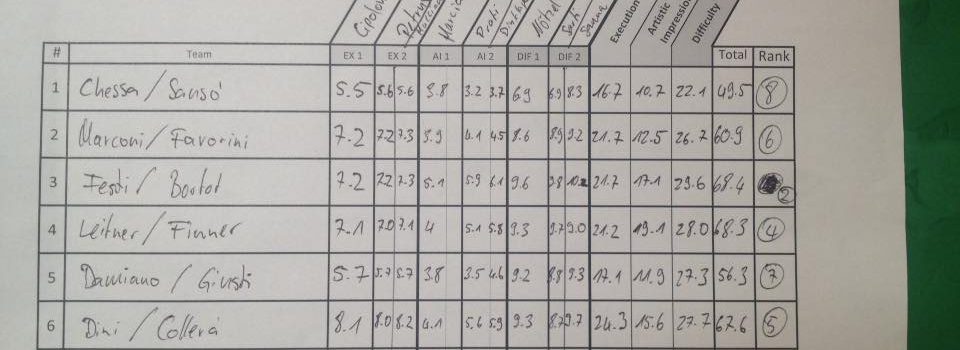 Cipolo
Marcia
Prati
Nötzel
Execution
Artistic Impression
Difficulty
# Team EX 1 EX 2 AI 1 AI 2 DIF 1 DIF 2 Total Rank
1 Chessa / Sansó 5.5 5.6 5.6 3.8 3.2 3.7 6.9 6.9 8.3 16.7 10.7 22.1 49.5 8
2 Marconi / Favorini 7.2 7.2 7.3 3.9 4.1 4.5 8.6 8.9 9.2 21.7 12.5 26.7 60.9 6
3 Festi / Bortot 7.2 7.2 7.3 5.1 5.9 6.1 9.6 9.8 21.7 17.1 29.6 68.4 2
4 Leitner / Finner 7.1 7.0 7.1 4 5.1 5.8 9.3 9.7 9.0 21.2 19.1 28.0 68.3 4
5 Damiano / Giusti 5.7 5.7 5.7 3.8 3.5 4.6 9.2 8.8 9.3 17.1 11.9 27.3 56.3 7
6 Dini / Collera 8.1 8.0 8.2 4.1 5.6 5.9 9.3 8.7 9.7 24.3 15.6 27.7 67.6 5